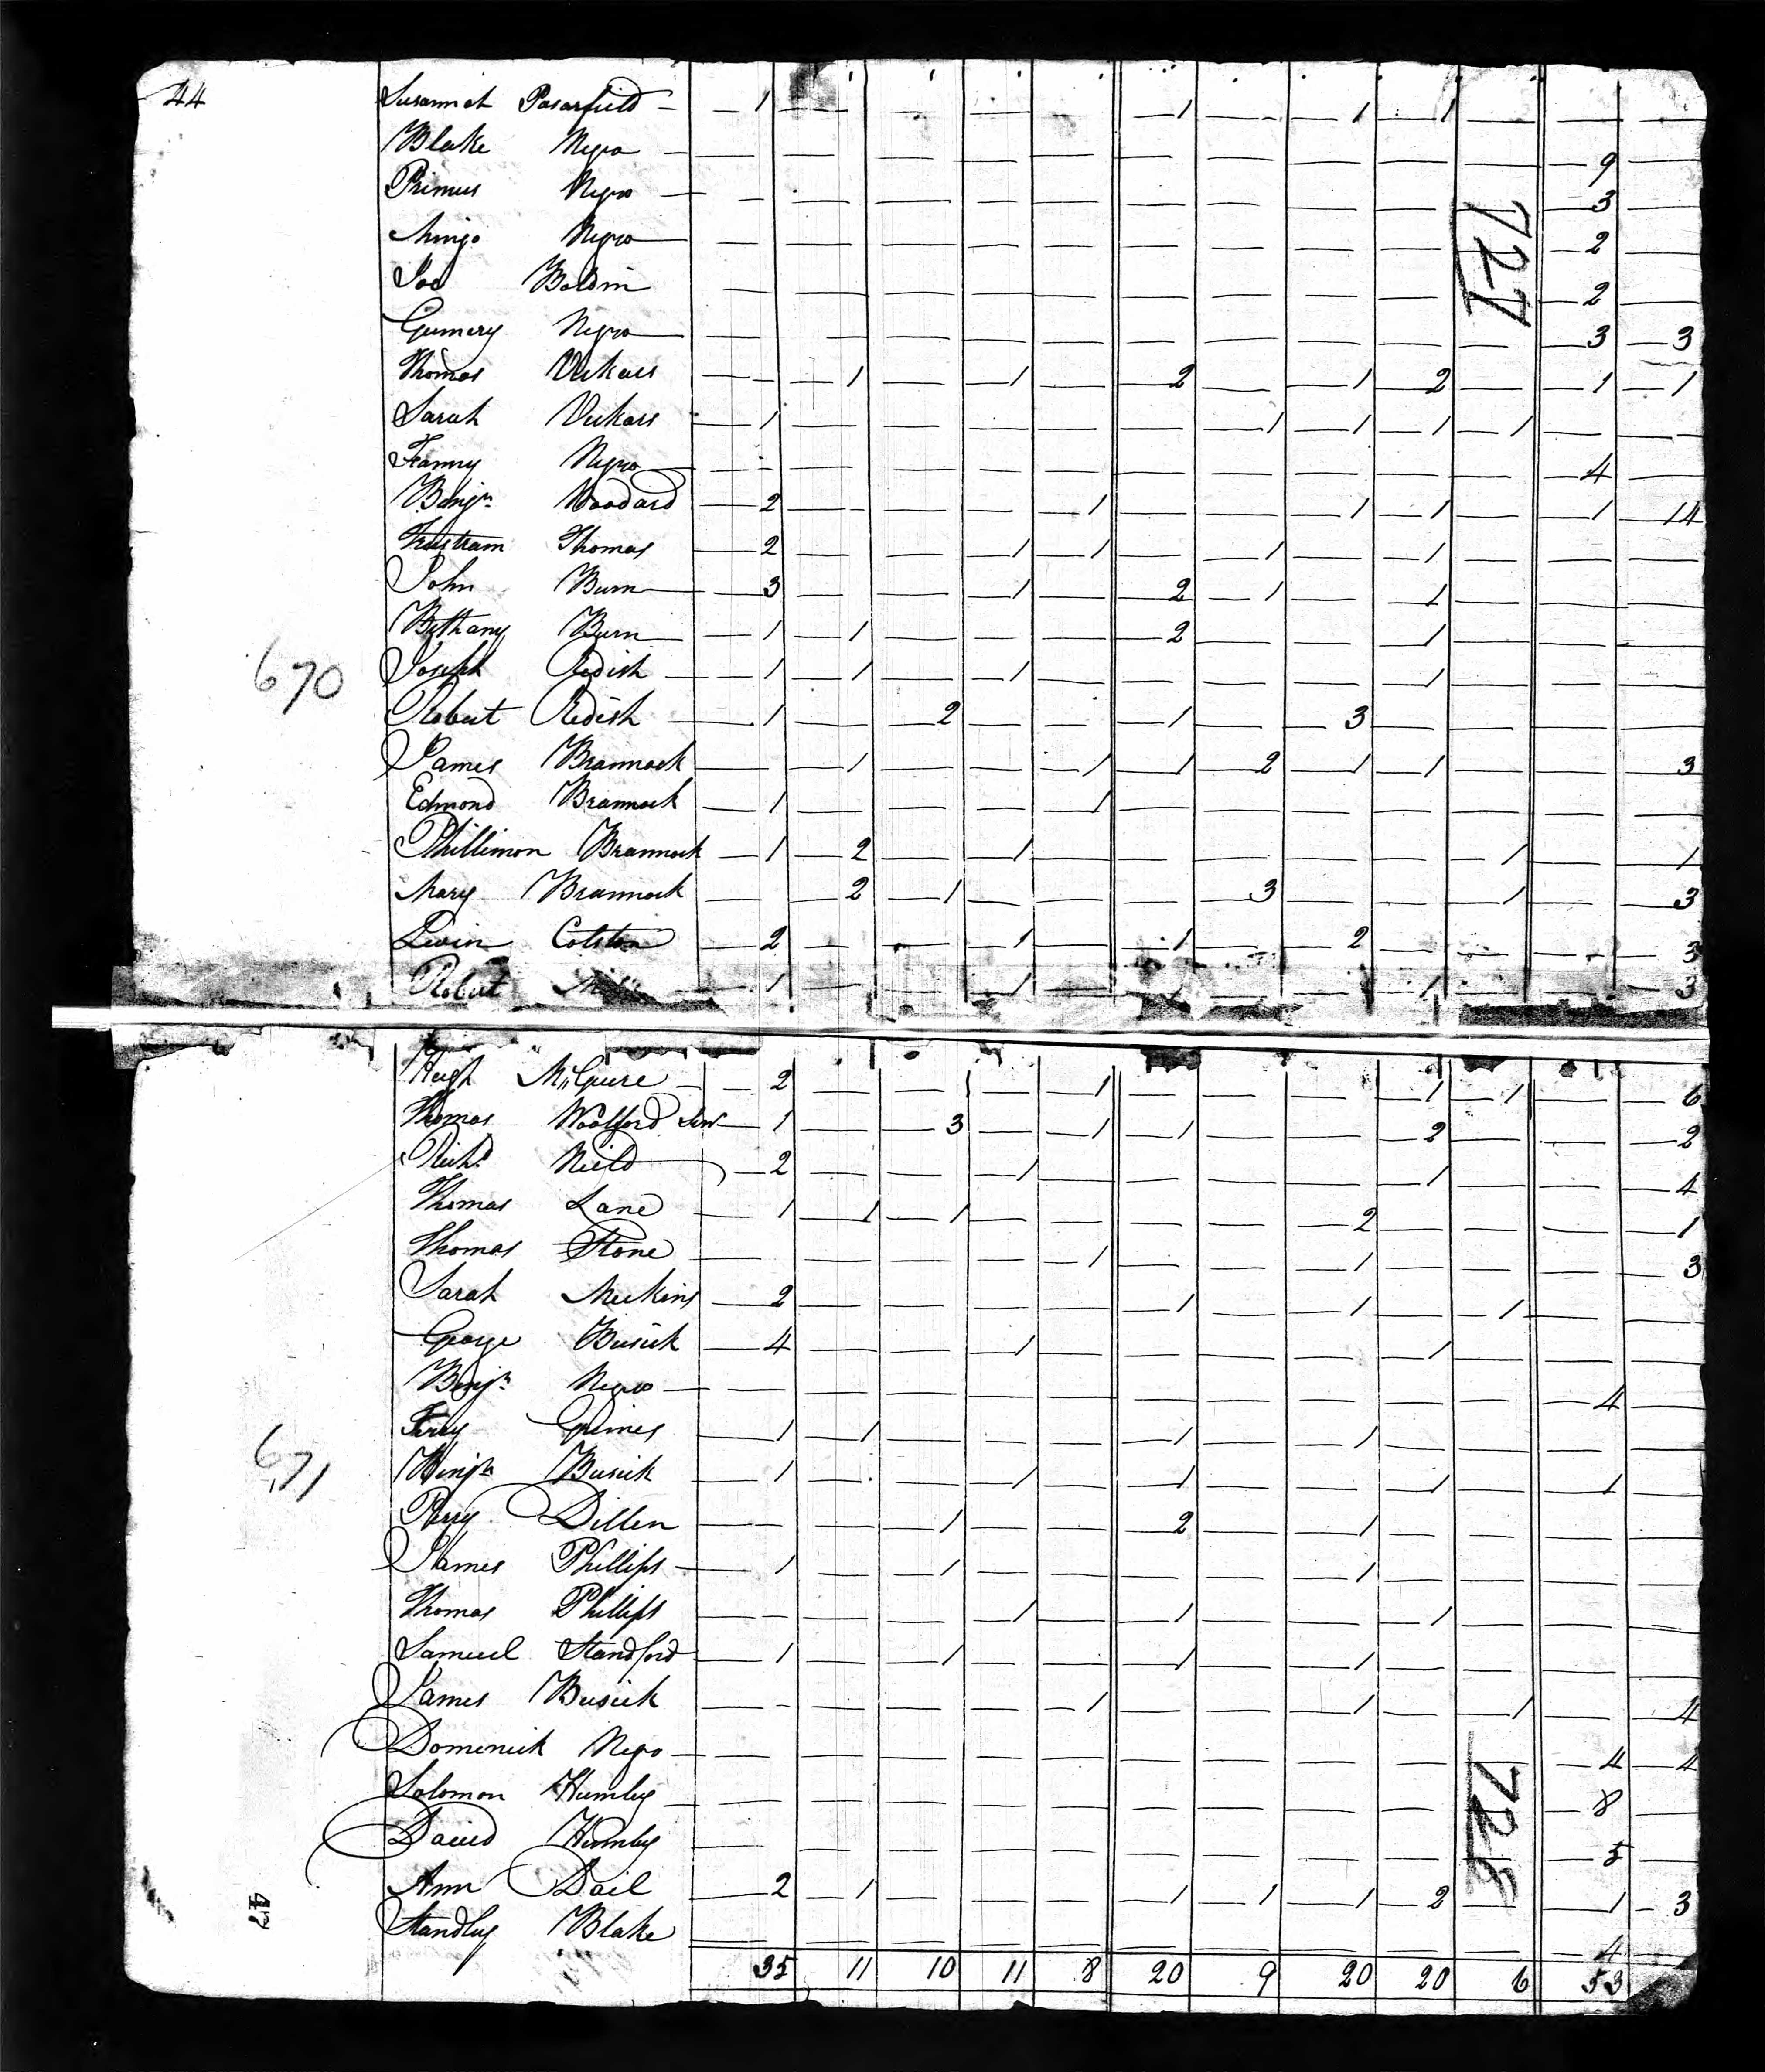 44 Susannah Pasarfield — 1 — — — — 1 — 1 1 — — —
Blake Negro — — — — — — — — — — — 9 —
Primus Negro — — — — — — — — — — — 3 —
Mingo Negro — — — — — — — — — — — 2 —
Joe Boldin — — — — — — — — — — 2 —
727
Gumery Negro — — — — — — — — — — — 3 — 3
Thomas Vickars — — 1 — 1 — 2 — 1 2 — 1 — 1
Sarah Vickars — 1 — — — — — 1 1 1 1 — —
Fanny Negro — — — — — — — — — — — 4 —
Benjn. Woodard — 2 — — — 1 — — 1 1 — 1 — 14
Trustram Thomas — 2 — — 1 1 — 1 — 1 — — —
John Burn — 3 — — 1 — 2 — 1 — 1 — — —
Bethany Burn — 1 — 1 — — — 2 — — 1 — — —
Joseph Redish — 1 — 1 — 1 — — — — 1 — — —
670
Robert Redish — 1 — 2 — — 1 — 3 — — — —
James Brannock — — 1 — — 1 1 2 1 1 — — 3
Edmond Brannock — 1 — — — 1 — — — — — — —
Phillimon Brannock — 1 — 2 — 1 — — — — — 1 — 1
Mary Brannock — — 2 — 1 — — — 3 — — 1 — 3
Levin Colston — 2 — — 1 — 1 — 2 — — — 3
Robert — 1 — — 1 — — — 1 — — 3
Hugh McGuire — 2 — — — 1 — — — 1 1 — 6
Thomas Woolford Senr — 1 — 3 — 1 1 — — 2 — — 2
Richd. Nield — 2 — — 1 — — — — 1 — — 4
Thomas Lane — 1 1 1 — — — — 2 — — — 1
Thomas Stone — — — — — 1 — — 1 — — — 3
Sarah Meekins — 2 — — — — 1 — 1 — 1 — —
George Busick — 4 — — 1 — — — — 1 — — —
Benjn. Negro — — — — — — — — — — — 4 —
Grimes — 1 1 — — — 1 — 1 — — — —
671
Benjn. Busick — 1 — — 1 — 1 — — 1 — 1 —
Perry Dillen — — — 1 — — 2 — 1 — — — —
James Phillips — 1 — 1 — — — — 1 — — — —
Thomas Phillips — — — — 1 — 1 — — 1 — — —
Samuel Standford — 1 — 1 — — 1 — 1 — — — —
James Busick — — — — — 1 — — 1 — 1 — 4
Domenick Negro — — — — — — — — — — — 4 — 4
728
Solomon Humby — — — — — — — — — — — 8 —
David Humby — — — — — — — — — — — 5 —
Ann Dail — 2 — 1 — — — 1 1 1 2 — 1 — 3
47
Standley Blake — — — — — — — — — — — 4
35 11 10 11 8 20 9 20 20 6 53